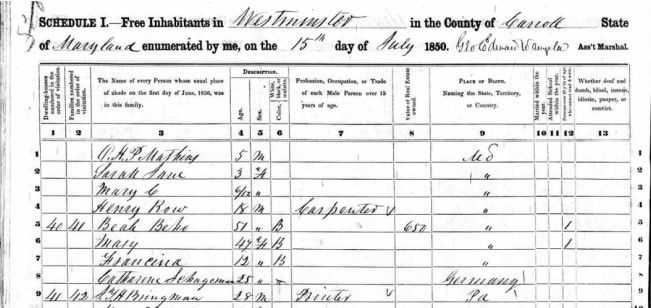 SCHEDULE I.—Free Inhabitants in Westminster in the County of Carroll State
of Maryland enumerated by me, on the 15th day of July 1850. Ass't Marshal.
Dwelling-houses numbered in the order of visitation. Families numbered in the order of visitation. The Name of every Person whose usual place of abode on the first day of June, 1850, was in this family. DESCRIPTION. Age. Sex. Color, White, black, or mulatto. Profession, Occupation, or Trade of each Male Person over 15 years of age. Value of Real Estate owned. PLACE OF BIRTH. Naming the State, Territory, or Country. Married within the year. Attended School within the year. Whether deaf and dumb, blind, insane, idiotic, pauper, or convict.
1 2 3 4 5 6 7 8 9 10 11 12 13
1 O. H. P. Mathias 5 M Md
2 Sarah Jane 3 F "
3 Mary C 6/12 " "
4 Henry Kow 18 M Carpenter "
5 40 41 Beho 51 " B 650 " 1
6 Mary 47 F B " 1
7 Francina 12 " B "
8 Catharine 25 " Germany
9 41 42 Bringman 28 M Printer Pa